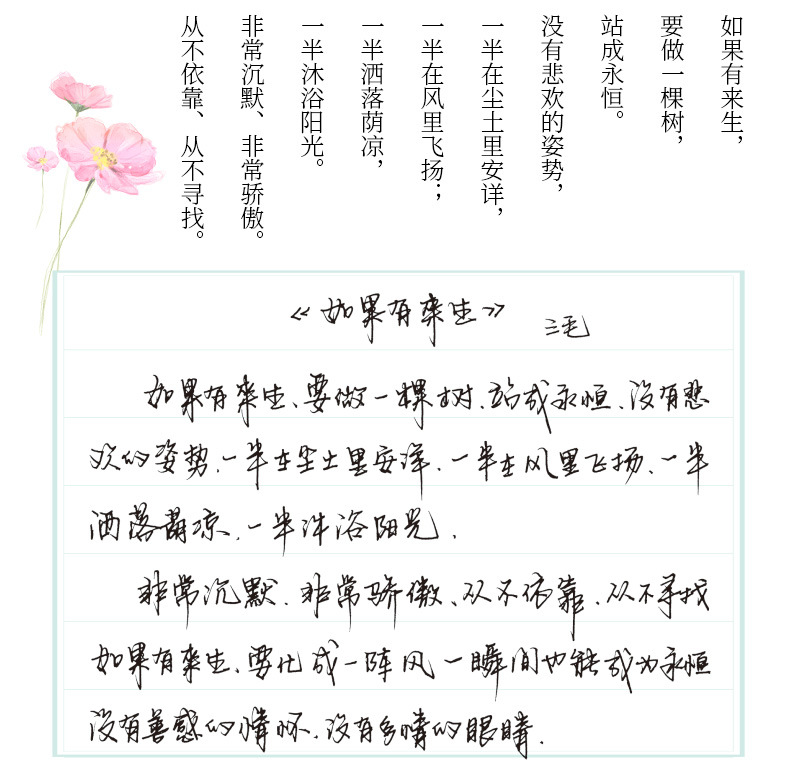 如果有来生，
要做一棵树，
站成永恒。
没有悲欢的姿势，
一半在尘土里安详，
一半在风里飞扬；
一半洒落荫凉，
一半沐浴阳光。
非常沉默、非常骄傲。
从不依靠、从不寻找。
《如果有来生》 三毛
如果有来生、要做一棵树、站成永恒、没有悲
欢的姿势、一半在尘土里安详、一半在风里飞扬、一半
洒落荫凉、一半沐浴阳光.
非常沉默、非常骄傲、从不依靠、从不寻找
如果有来生、要化成一阵风 一瞬间也能成为永恒
没有善感的情怀、没有多情的眼睛.